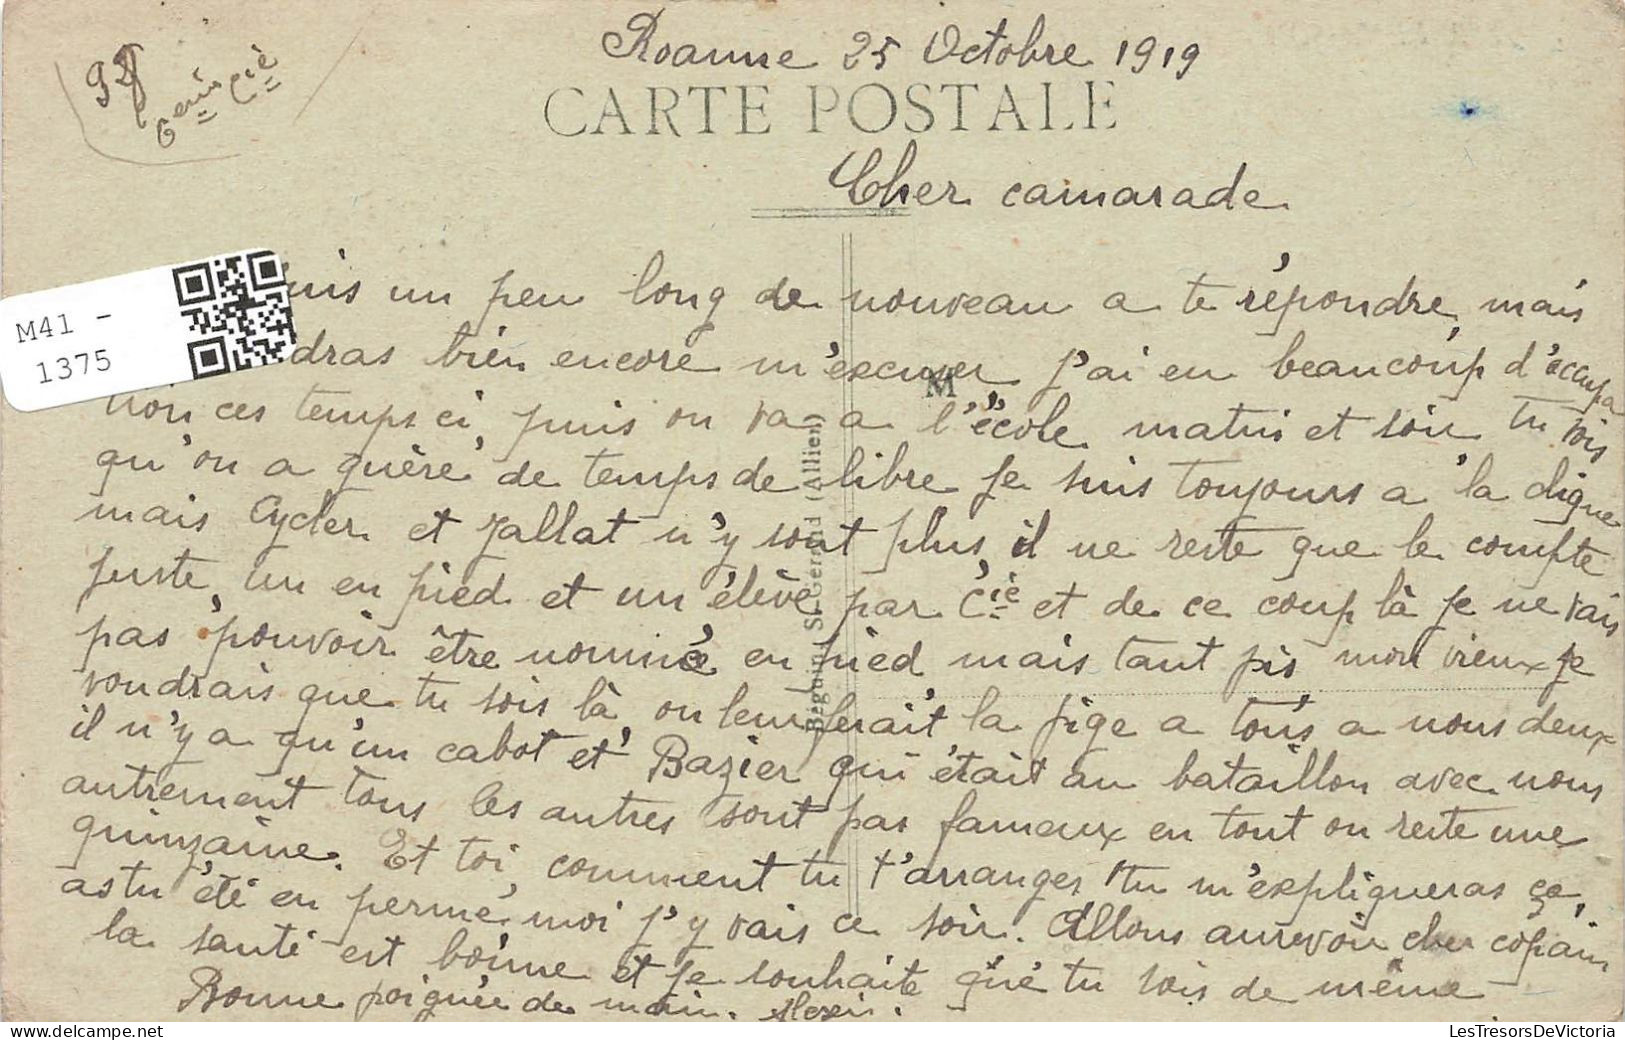 Roanne 25 Octobre 1919
98
Génie
Cie
CARTE POSTALE
Cher camarade
M41 -
1375
suis un peu long de nouveau a te répondre, mais
dras bien encore m'excuser j'ai eu beaucoup d'occupa
tion ces temps ci, puis on va a l'école matin et soir tu vois
qu'on a guère de temps de libre je suis toujours a la digue
mais Cycler et Jallat n'y sont plus, il ne reste que le compte
juste, un en pied et un élève par Cie et de ce coup là je ne vais
pas pouvoir être nommé en pied mais tant pis mon vieux je
voudrais que tu sois là, on leur ferait la pige a tous a nous deux
il n'y a qu'un cabot et Bazier qui était au bataillon avec nous
autrement tous les autres sont pas fameux en tout on reste une
quinzaine. Et toi comment tu t'arranges tu m'expliqueras ça,
as tu été en perme, moi j'y vais ce soir. Allons aurevoir cher copain
la santé est bonne et je souhaite que tu sois de même
Bonne poignée de main. Alexis.
Béguin, St-Gérand (Allier)
M
LesTresorsDeVictoria